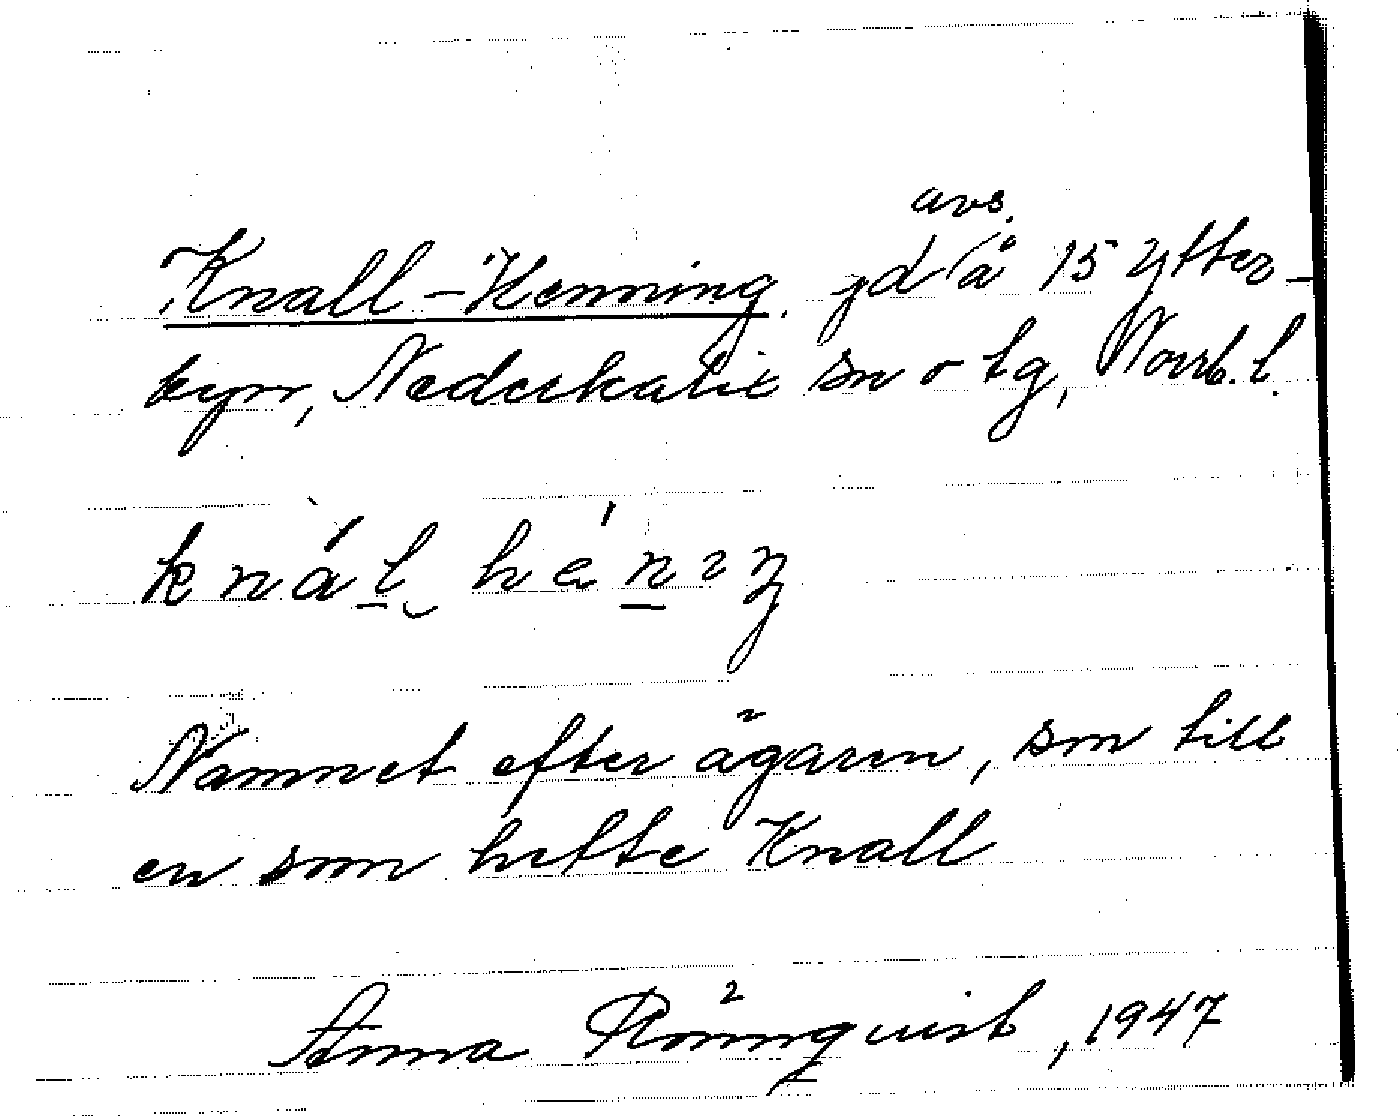 Knall-Henning, jd avs. å 15 Ytter-
byn, Nederkalix sn o tg, Norrb. l.
knál hén
Namnet efter ägaren, son till
en som hette Knall
Anna Rönnquist, 1947